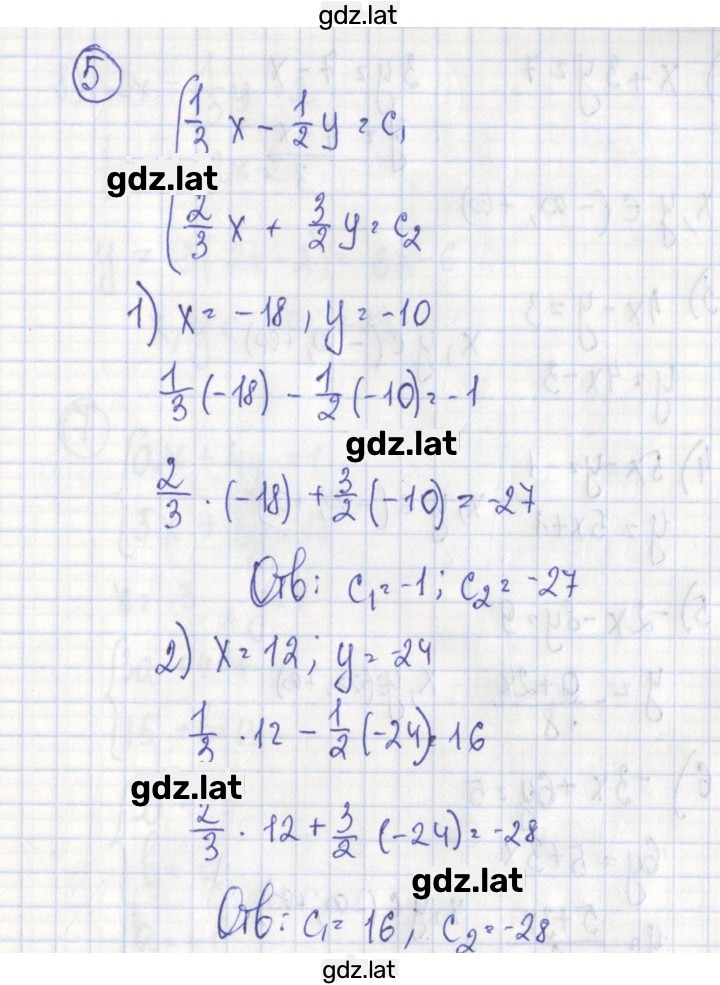 gdz.lat
5
1/3 x - 1/2 y = c₁
gdz.lat
2/3 x + 3/2 y = c₂
1) x = -18, y = -10
1/3 (-18) - 1/2 (-10) = -1
gdz.lat
2/3 · (-18) + 3/2 (-10) = -27
Отв: c₁ = -1; c₂ = -27
2) x = 12; y = -24
1/3 · 12 - 1/2 (-24) = 16
gdz.lat
2/3 · 12 + 3/2 (-24) = -28
gdz.lat
Отв: c₁ = 16; c₂ = -28
gdz.lat